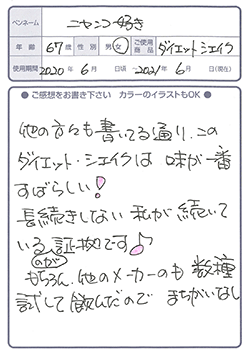 ペンネーム ニャンコ好き
年齢 67歳 性別 男・女 ご使用商品 ダイエットシェイク
使用期間 2020年 6月 日頃 ~2021年 6月 日(現在)
● ご感想をお書き下さい カラーのイラストもOK ●
他の方々も書いてる通り、この
ダイエット・シェイクは 味が一番
すばらしい!
長続きしない 私が 続いて
いるのが証拠です♪
もちろん、他のメーカーのも 数種
試して飲んだので まちがいなし